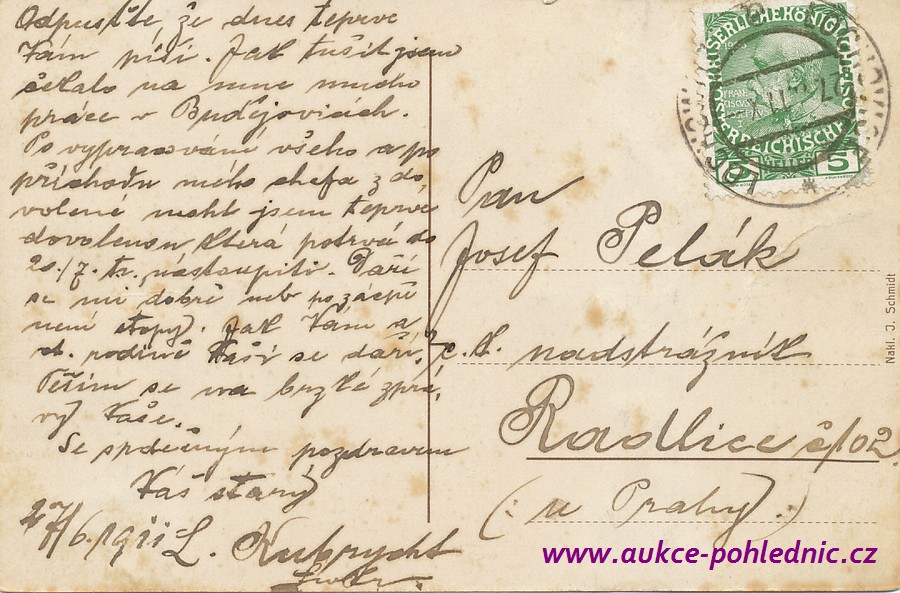 Odpusťte, že dnes teprve
Vám píši. Jak tušit jsem
čekalo na mne mnoho
práce v Budějovicích.
Po vypracování všeho a po
příchodu mého chefa z do
volené mohl jsem teprve
dovolenou, která potrvá do
20./7. t.r. nastoupiti. Daří
se mi dobře neb po zácpě
není stopy. Jak Vám a
ct. rodině Vaší se daří,
Těším se na brzké zprá
vy Vaše.
Se srdečným pozdravem
Váš starý
27/6. 1911 L. Kubrycht
Pan
Josef Pelák
c. k. nadstrážník
Radlice č/102
(: u Prahy :)
KAISERLICHE KÖNIGLICHE
ÖSTERREICHISCHE
5 HELLER 5
Nakl. J. Schmidt
www.aukce-pohlednic.cz